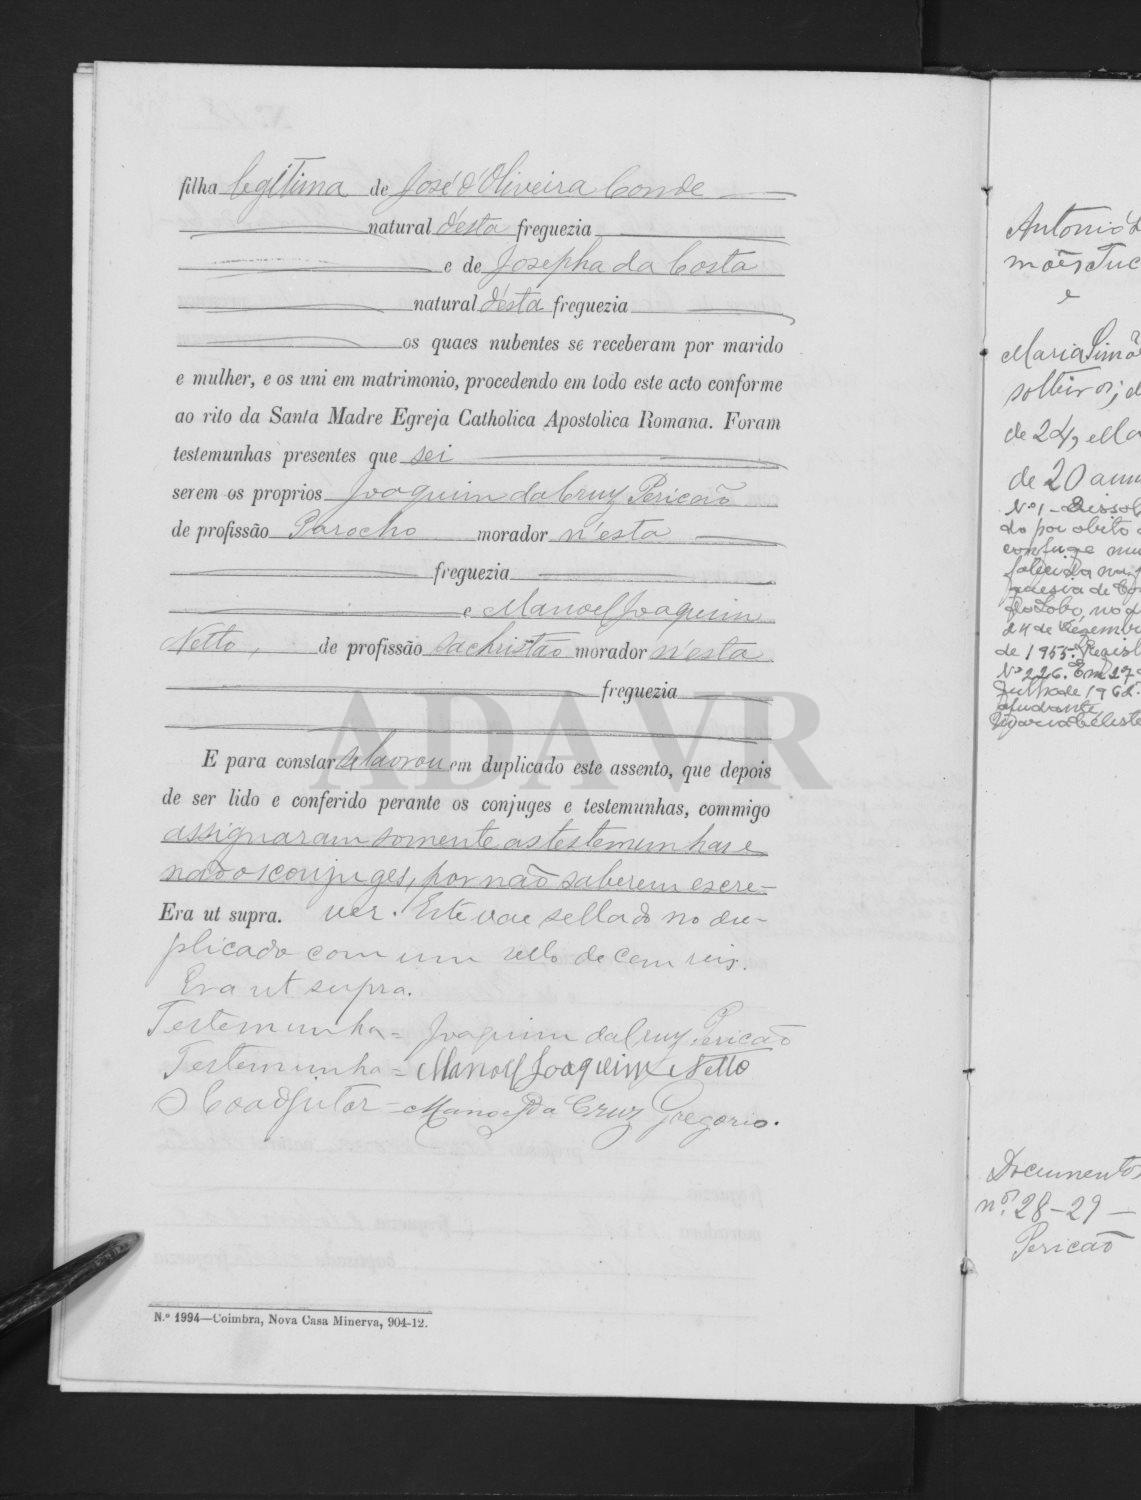 filha legitima de José d'Oliveira Conde
natural d'esta freguezia
e de Josepha da Costa
natural d'ésta freguezia
os quaes nubentes se receberam por marido
e mulher, e os uni em matrimonio, procedendo em todo este acto conforme
ao rito da Santa Madre Egreja Catholica Apostolica Romana. Foram
testemunhas presentes que sei
serem os proprios Joaquim da Cruz Pericão
de profissão Parocho morador n'esta
freguezia
e Manoel Joaquim
Netto, de profissão sachristão morador n'esta
freguezia
E para constar se lavrou em duplicado este assento, que depois
de ser lido e conferido perante os conjuges e testemunhas, commigo
assignaram somente as testemunhas e
não os conjuges, por não saberem escre-
Era ut supra. ver. Este vae sellado no du-
plicado com um sello de cem reis.
Era ut supra.
Testemunha = Joaquim da Cruz Pericão
Testemunha = Manoel Joaquim Netto
O Coadjutor = Manoel da Cruz Gregorio.
N.º 1994—Coimbra, Nova Casa Minerva, 904-12.
ADAVR
Antonio
e
Maria Simõ
solteiros; d
de 24, ella
de 20 ann
Nº 1 - Dissol
do por obito
conjuge mu
falecida na
guesia de
do Lobo, no d
24 de Dezembr
de 1955. Regist
Nº 226. Em 27
Julho de 1962.
ajudante
Maria Celeste
Documentos
nºs 28-29 —
Pericão